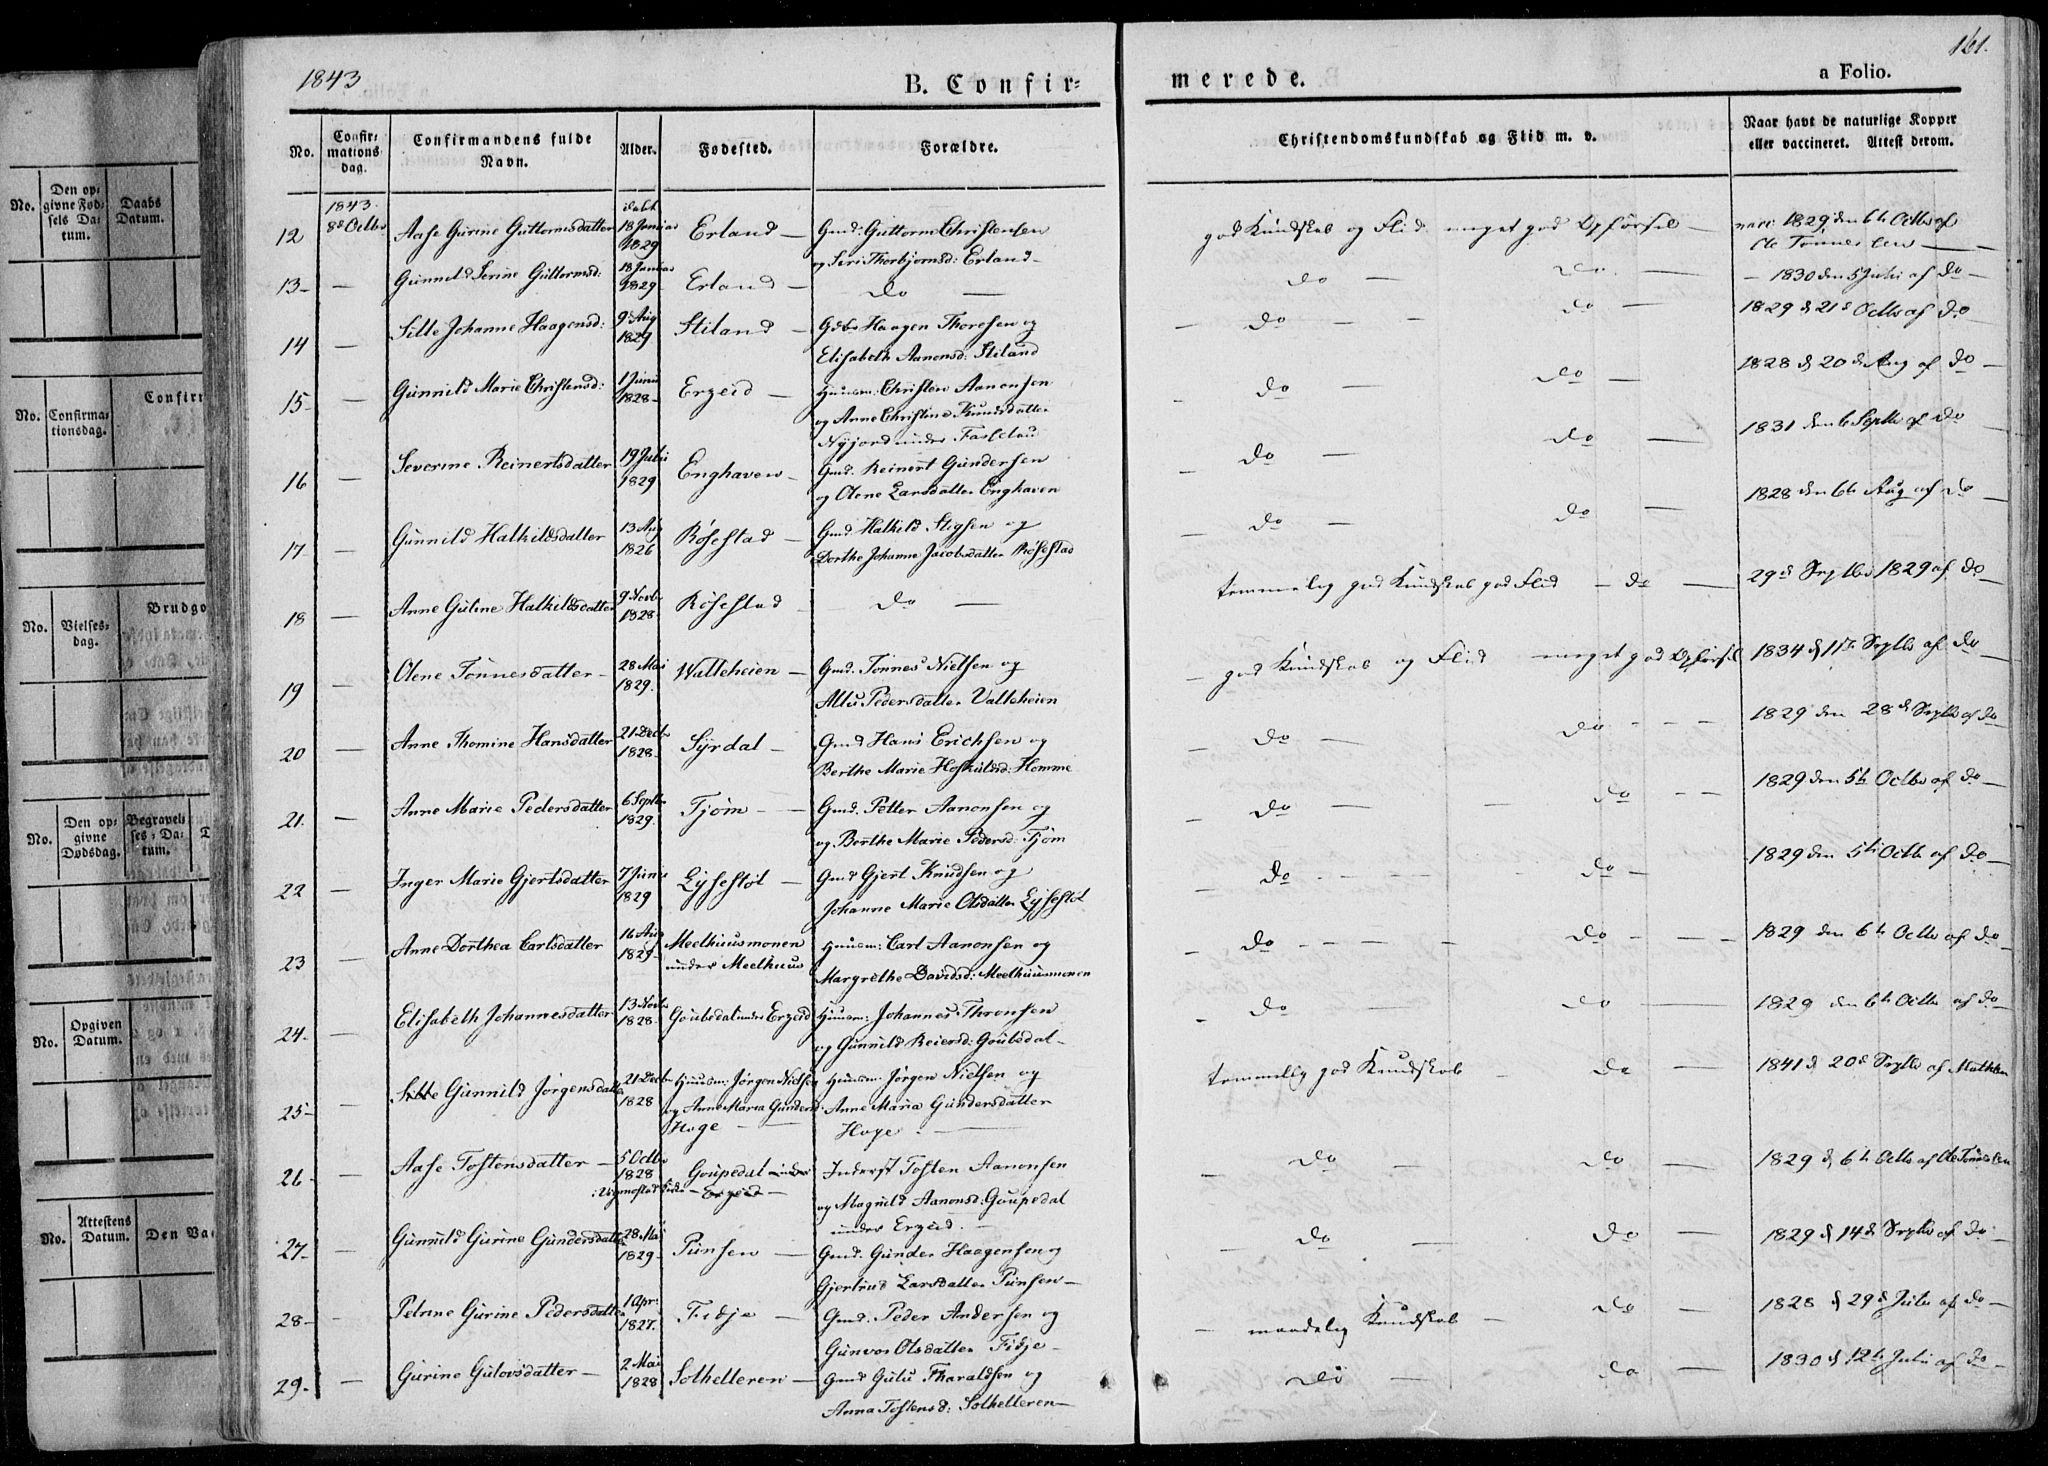 161.
1843
B. Confir=
merede.
a Folio.
No.
Confir-
mations
dag.
Confirmandens fulde
Navn.
Alder.
Fødested.
Forældre.
Christendomskundskab og Flid m. v.
Naar havt de naturlige Kopper
eller vaccineret. Attest derom.
1843.
12 8de Octbr Aase Gurine Guttormsdatter 18 Januar 1829 Erland — Gmd: Guttorm Christensen og Siri Thorbjørnsd: Erland — god Kundskab og Flid meget god Opførsel — vacc: 1829 den 6te Octbr af Ole Tønnesen —
13 — Gunnild Serine Guttormsd: 18 Januar 1829 Erland — do — do — do — — 1830 den 5 Julii af do —
14 — Sille Johanne Haagensd: 9de Aug 1829 Stiland — Gdbr Haagen Thoresen og Elisabeth Aanonsd: Stiland — do — — do — 1829 d 21de Octbr af do
15 — Gunnild Marie Christensd: 1 Junii 1828 — Ergeid — Huusm: Christen Aanonsen og Anne Christine Knudsdatter Nyjord under Fasseland — do — do — 1828 d 20de Aug af do —
16 — Severine Reinertsdatter 19 Julii 1829 Enghaven — Gmd. Reinert Gundersen og Olene Larsdatter Enghaven — do — do — 1831 den 6 Septbr af do
17 — Gunnild Halkildsdatter 13 Aug 1826 Røsestad — Gmd Halkild Stigsen og Dorthe Johanne Jacobsdatter Røsestad — do — do — 1828 den 6te Aug af do —
18 — Anne Guline Halkildsdatter 9 Novbr 1828 Røsestad — do — temmelig god Kundskab god Flid — do — 29de Septbr 1829 af do —
19 — Olene Tønnesdatter — 28 Mai 1829. Walleheien — Gmd. Tønnes Nielsen og Allu Pedersdatter Valleheien — god Kundskab og Flid meget god Opførsel 1834 d 11te Septbr af do —
20 — Anne Thomine Hansdatter 21 Decbr 1828 — Syrdal — Gmd Hans Erichsen og Berthe Marie Hoskuldsd: Homme — do — do - - - 1829 den 28de Septbr af do —
21. — Anne Marie Pedersdatter 6 Septbr 1829. Tjøm — Gmd. Petter Aanonsen og og Berthe Marie Pedersd: Tjøm — do — — do - - 1829 den 5te Octbr af do —
22 — Inger Marie Gjertsdatter 7 Junii 1829 Lysestøl — Gmd Gjert Knudsen og Johanne Marie Olsdatter Lysestøl — do - - - - do — 1829 den 5te Octbr af do —
23 — Anne Dorthea Carlsdatter 16 Aug 1829 — Meelhuusmonen under Meelhuus Huusm: Carl Aanonsen og Margrethe Davidsd: Meelhuusmonen — do - - - - do - - - 1829 den 6te Octbr af do
24. — Elisabeth Johannesdatter 13 Novbr 1828. Goubsdal under Ergeid Huusm: Johannes Thronsen og Gunnild Reiersd: Goubsdal — — do — — do — 1829 den 6te Octbr af do —
25 — Sille Gunnild Jørgensdatter 21 Decbr 1828 Huusm: Jørgen Nielsen og Anne Maria Gundersd: Hoge — Huusm: Jørgen Nielsen og Anne Maria Gundersdatter Hoge — temmelig god Kundskab — do — 1841 d 20de Septbr af
26 — Aase Tostensdatter — 5 Octbr 1828 Goupedal under Ergeid — Inderst Tosten Aanonsen og Magnild Aanonsd: Goupedal under Ergeid. — do — do — 1829 d 6te Octbr af Ole Tønnesen
27 — Gunnild Gurine Gundersdatter 28 Mai 1829 — Punsen — Gmd. Gunder Haagensen og Gjertrud Larsdatter Punsen — — do — do — 1829 d 14de Septbr af do —
28 — Petrine Gurine Pedersdatter 1 Apr: 1827. Fidje — Gmd. Peder Andersen og Gunvor Olsdatter Fidje — — maadelig Kundskab — do — 1828 d 29de Julii af do —
29. — Gurine Gulovsdatter — 2 Mai 1828 Solhelleren — Gmd Gulu Tharaldsen og Anna Tostensd: Solhelleren — do — do — 1830 d 12te Julii af do —
No.
Den op-
givne Fød-
sels Da-
tum.
Daabs
Datum.
No.
Confirma-
tionsdag.
Confir
No.
Vielses-
dag.
Brudgo
No.
Den op-
givne
Dødsdag.
Begravel-
ses-Da-
tum.
No.
Opgiven
Datum.
No.
Attestens
Datum.
Den Va